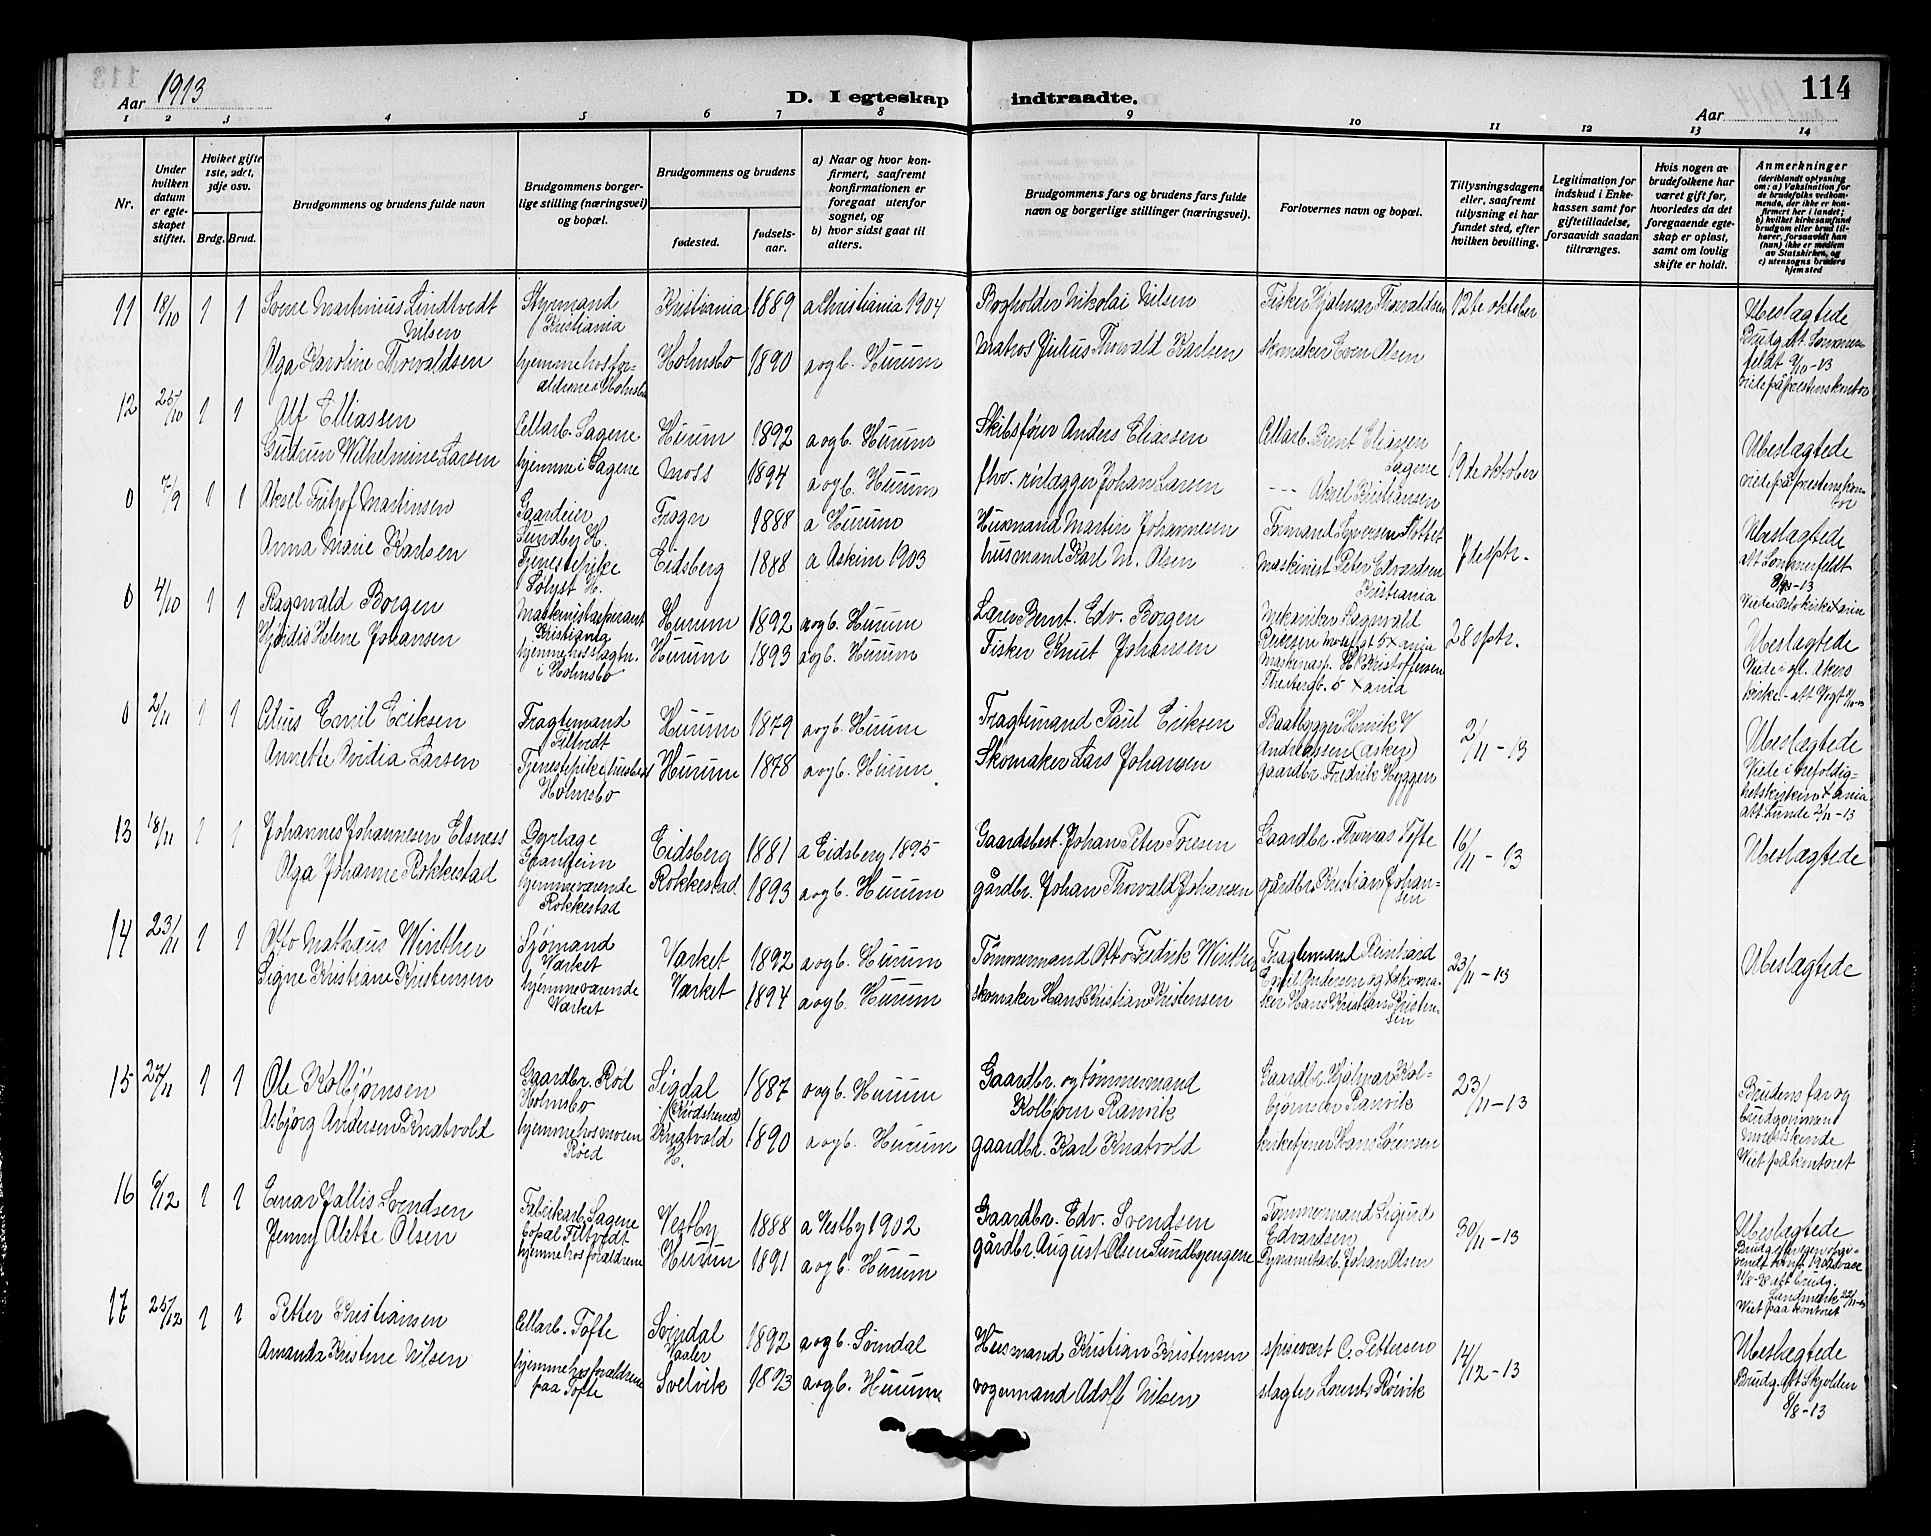 Aar 1913
D. I egteskap indtraadte.
Aar
114
1 2 3 4 5 6 7 8 9 10 11 12 13 14
Nr.
Under hvilken datum er egteskapet stiftet.
Hvilket gifte 1ste, 2det, 3dje osv.
Brdg. Brud.
Brudgommens og brudens fulde navn
Brudgommens borgerlige stilling (næringsvei) og bopæl.
Brudgommens og brudens
fødested.
fødselsaar.
a) Naar og hvor konfirmert, saafremt konfirmationen er foregaat utenfor sognet, og
b) hvor sidst gaat til alters.
Brudgommens fars og brudens fars fulde navn og borgerlige stillinger (næringsvei).
Forlovernes navn og bopæl.
Tillysningsdagene eller, saafremt tillysning ei har fundet sted, efter hvilken bevilling.
Legitimation for indskud i Enkekassen samt for giftetilladelse, forsaavidt saadan tiltrænges.
Hvis nogen av brudefolkene har været gift før, hvorledes da det foregaaende egteskap er opløst, samt om lovlig skifte er holdt.
Anmerkninger (deriblandt oplysning om: a) Vaksination for de brudefolks vedkommende, der ikke er konfirmert her i landet; b) hvilket kirkesamfund brudgom eller brud tilhører, forsaavidt han (hun) ikke er medlem av Statskirken, og c) utensogns bruders hjemsted
11 18/10 1 1 Martinius Lindtvedt Nilsen Styrmand Kristiania Kristiania 1889 a Christiania 1904 Bogholder Nikolai Nilsen Fisker Hjalmar Thorvaldsen 12te oktober Ubeslægtede
Olga Karoline Thorvaldsen hjemme hos forældrene i Holmsbo Holmsbo 1890 a og b. Hurum Matros Julius Thorvald Karlsen skomaker Even Olsen
Brudg. att. 9/10-13 viet på prestens kontor
12 25/10 1 1 Alf Elliassen Cellarb. Sagene Hurum 1892 a og b. Hurum Skibsfører Anders Eliassen Cellarb. Bernt Eliassen Sagene 19de oktober Ubeslægtede
Gudrun Wilhelmine Larsen hjemme i Sagene Moss 1894 a og b. Hurum Johan Larsen --- Aksel Kristiansen viet på prestens kontor
0 7/9 1 1 Aksel Fritjof Martinsen Gaardeier Sundby H. Frogn 1888 a Hurum Husmand Martin Johannesen Formand Syversen 7de sptr. Ubeslægtede
Anna Marie Karlsen Tjenestepike Solyst H. Eidsberg 1888 a Askim 1903 husmand Karl M. Olsen Maskinist Peter Edvardsen Kristiania
att. Sommerfeldt
0 4/10 1 1 Ragnvald Borgen Maskinistaspirant Kristiania Hurum 1892 a og b. Hurum Lærer Bernt Edv. Borgen Mekaniker Ragnvald 28 sptr. Ubeslægtede
Hjørdis Helene Johansen hjemme hos slegtn. i Holmsbo Hurum 1893 a og b. Hurum Fisker Knut Johansen Maskinast. H. Kristoffersen
Viede i gl. Akers kirke - att. Vogt
0 2/11 1 1 Emil Eriksen Fragtemand Filtvedt Hurum 1879 a og b. Hurum Fragtemand Paul Eriksen Baatbygger Henrik Andreassen (Asker) 2/11-13 Ubeslægtede
Annette Ovidia Larsen Tjenestepike Holmsbo Hurum 1878 a og b. Hurum. Skomaker Lars Johansen Gaardbr. Fredrik Hyggen
Viede i trefoldighetskirken Xania att. Lunde 2/11-13
13 18/11 1 1 Johannes Johannesen Elsness Dyrlæge Granheim Eidsberg 1881 a Eidsberg 1895 Gaardsbest. Johan Peter Toresen Gaardbr. Thomas Tofte 16/11-13 Ubeslægtede
Olga Johanne Rokkestad hjemmeværende Rokkestad Rokkestad 1893 a og b. Hurum gårdbr. Johan Thorvald Johansen gårdbr. Kristian Johansen
14 23/11 1 1 Otto Mathæus Winther Sjømand Værket Værket 1892 a og b. Hurum Tømmermand Otto Fredrik Winther Fragtemand Reinhard 23/11-13 Ubeslægtede
Signe Kristiane Kristensen hjemmeværende Værket Værket 1894 a og b. Hurum skomaker Hans Kristian Kristensen Andersen og skomaker Hans Kristian Kristensen
15 27/11 1 1 Ole Kolbjørnsen Gaardbr. Rød Holmsbo Sigdal 1887 a og b. Hurum Gaardbr. og tømmermand Kolbjørn Ranvik Gaardbr. Hjalmar Kolbjørnsen Ranvik 23/11-13 Brudens far og brudgommen næstsøskende
Asbjørg Andersen Knatvold hjemme hos moren Rød Knatvold H. 1890 a og b. Hurum gaardbr. Karl Knatvold kirketjener Hans Sørensen Viet på kontoret
16 6/12 1 1 Einar Jallis Svendsen Fabrikarb. Sagene bopæl Filtvedt Vestby 1888 a Vestby 1902 Gaardbr. Edv. Svendsen Tømmermand Sigurd Edvardsen 30/11-13 Ubeslægtede
Jenny Alette Olsen hjemme hos forældrene Hurum 1891 a og b. Hurum gårdbr. August Olsen Sundbyengene Dynamitarb. Johan Olsen
Viet paa kontoret
17 25/12 1 1 Petter Kristiansen Cellarb. Tofte Svindal Vaaler 1892 a og b. Svindal Husmand Kristian Kristensen spisevært C. Pettersen 14/12-13 Ubeslægtede
Amanda Kristine Nilsen hjemme hos forældrene paa Tofte Svelvik 1893 a og b. Hurum vognmand Adolf Nilsen slagter Lorents Røivik Brudg. att. Skjolden 6/8-13